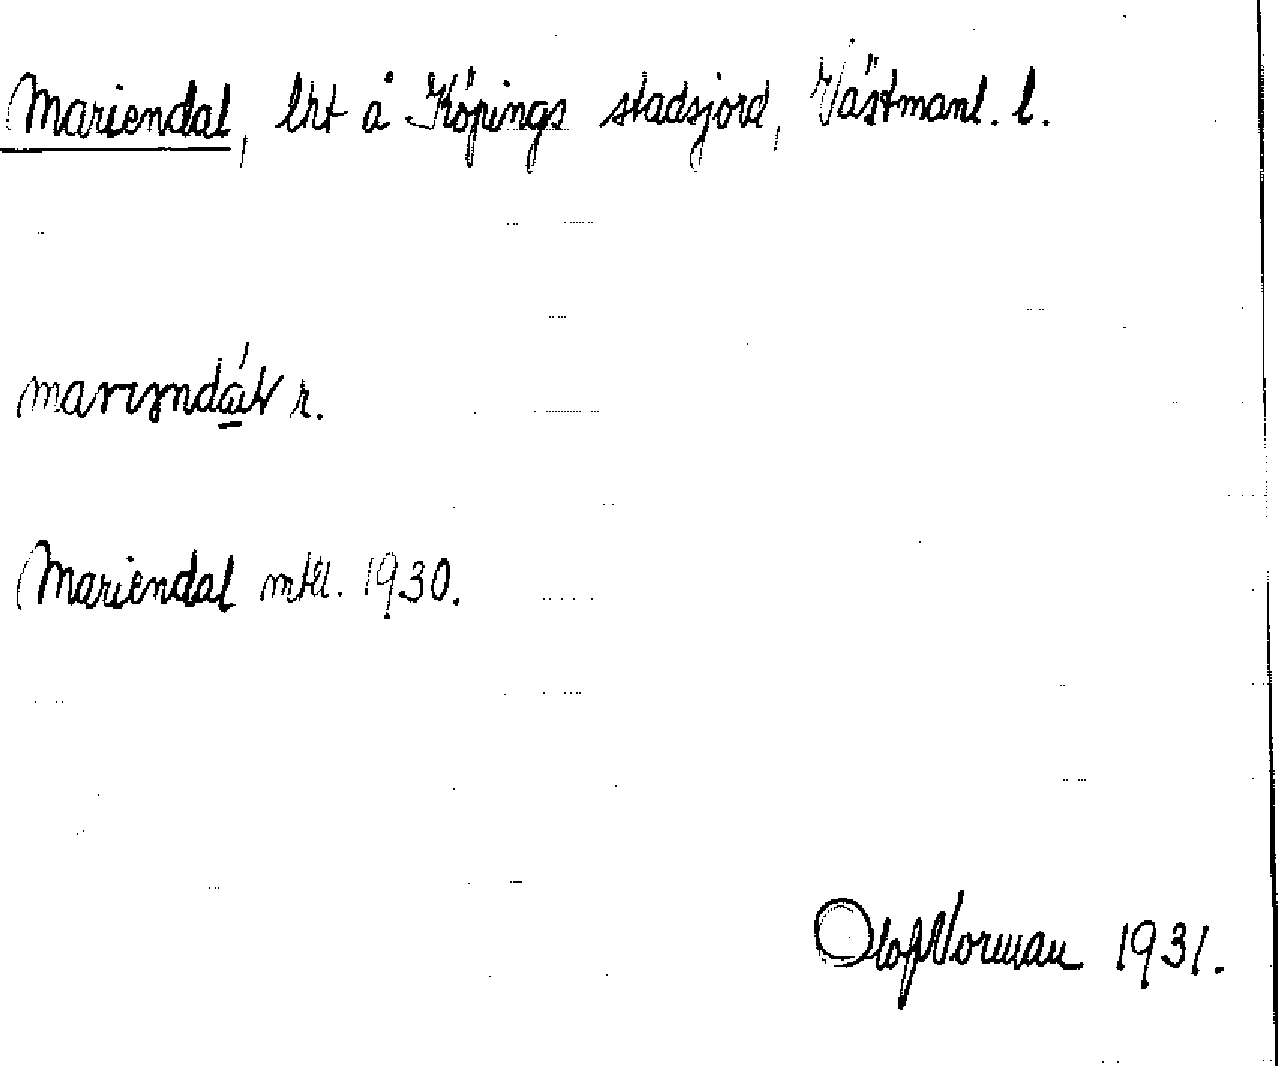 Mariendal, lht å Köpings stadsjord, Västmanl. l.
r.
Mariendal mtl. 1930.
Olof Norman 1931.